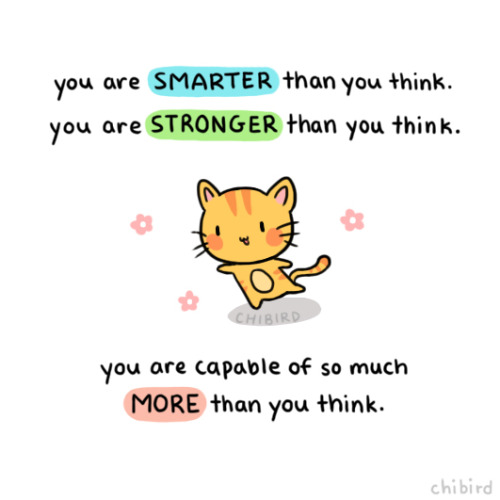 you are SMARTER than you think.
you are STRONGER than you think.
CHIBIRD
you are capable of so much
MORE than you think.
chibird